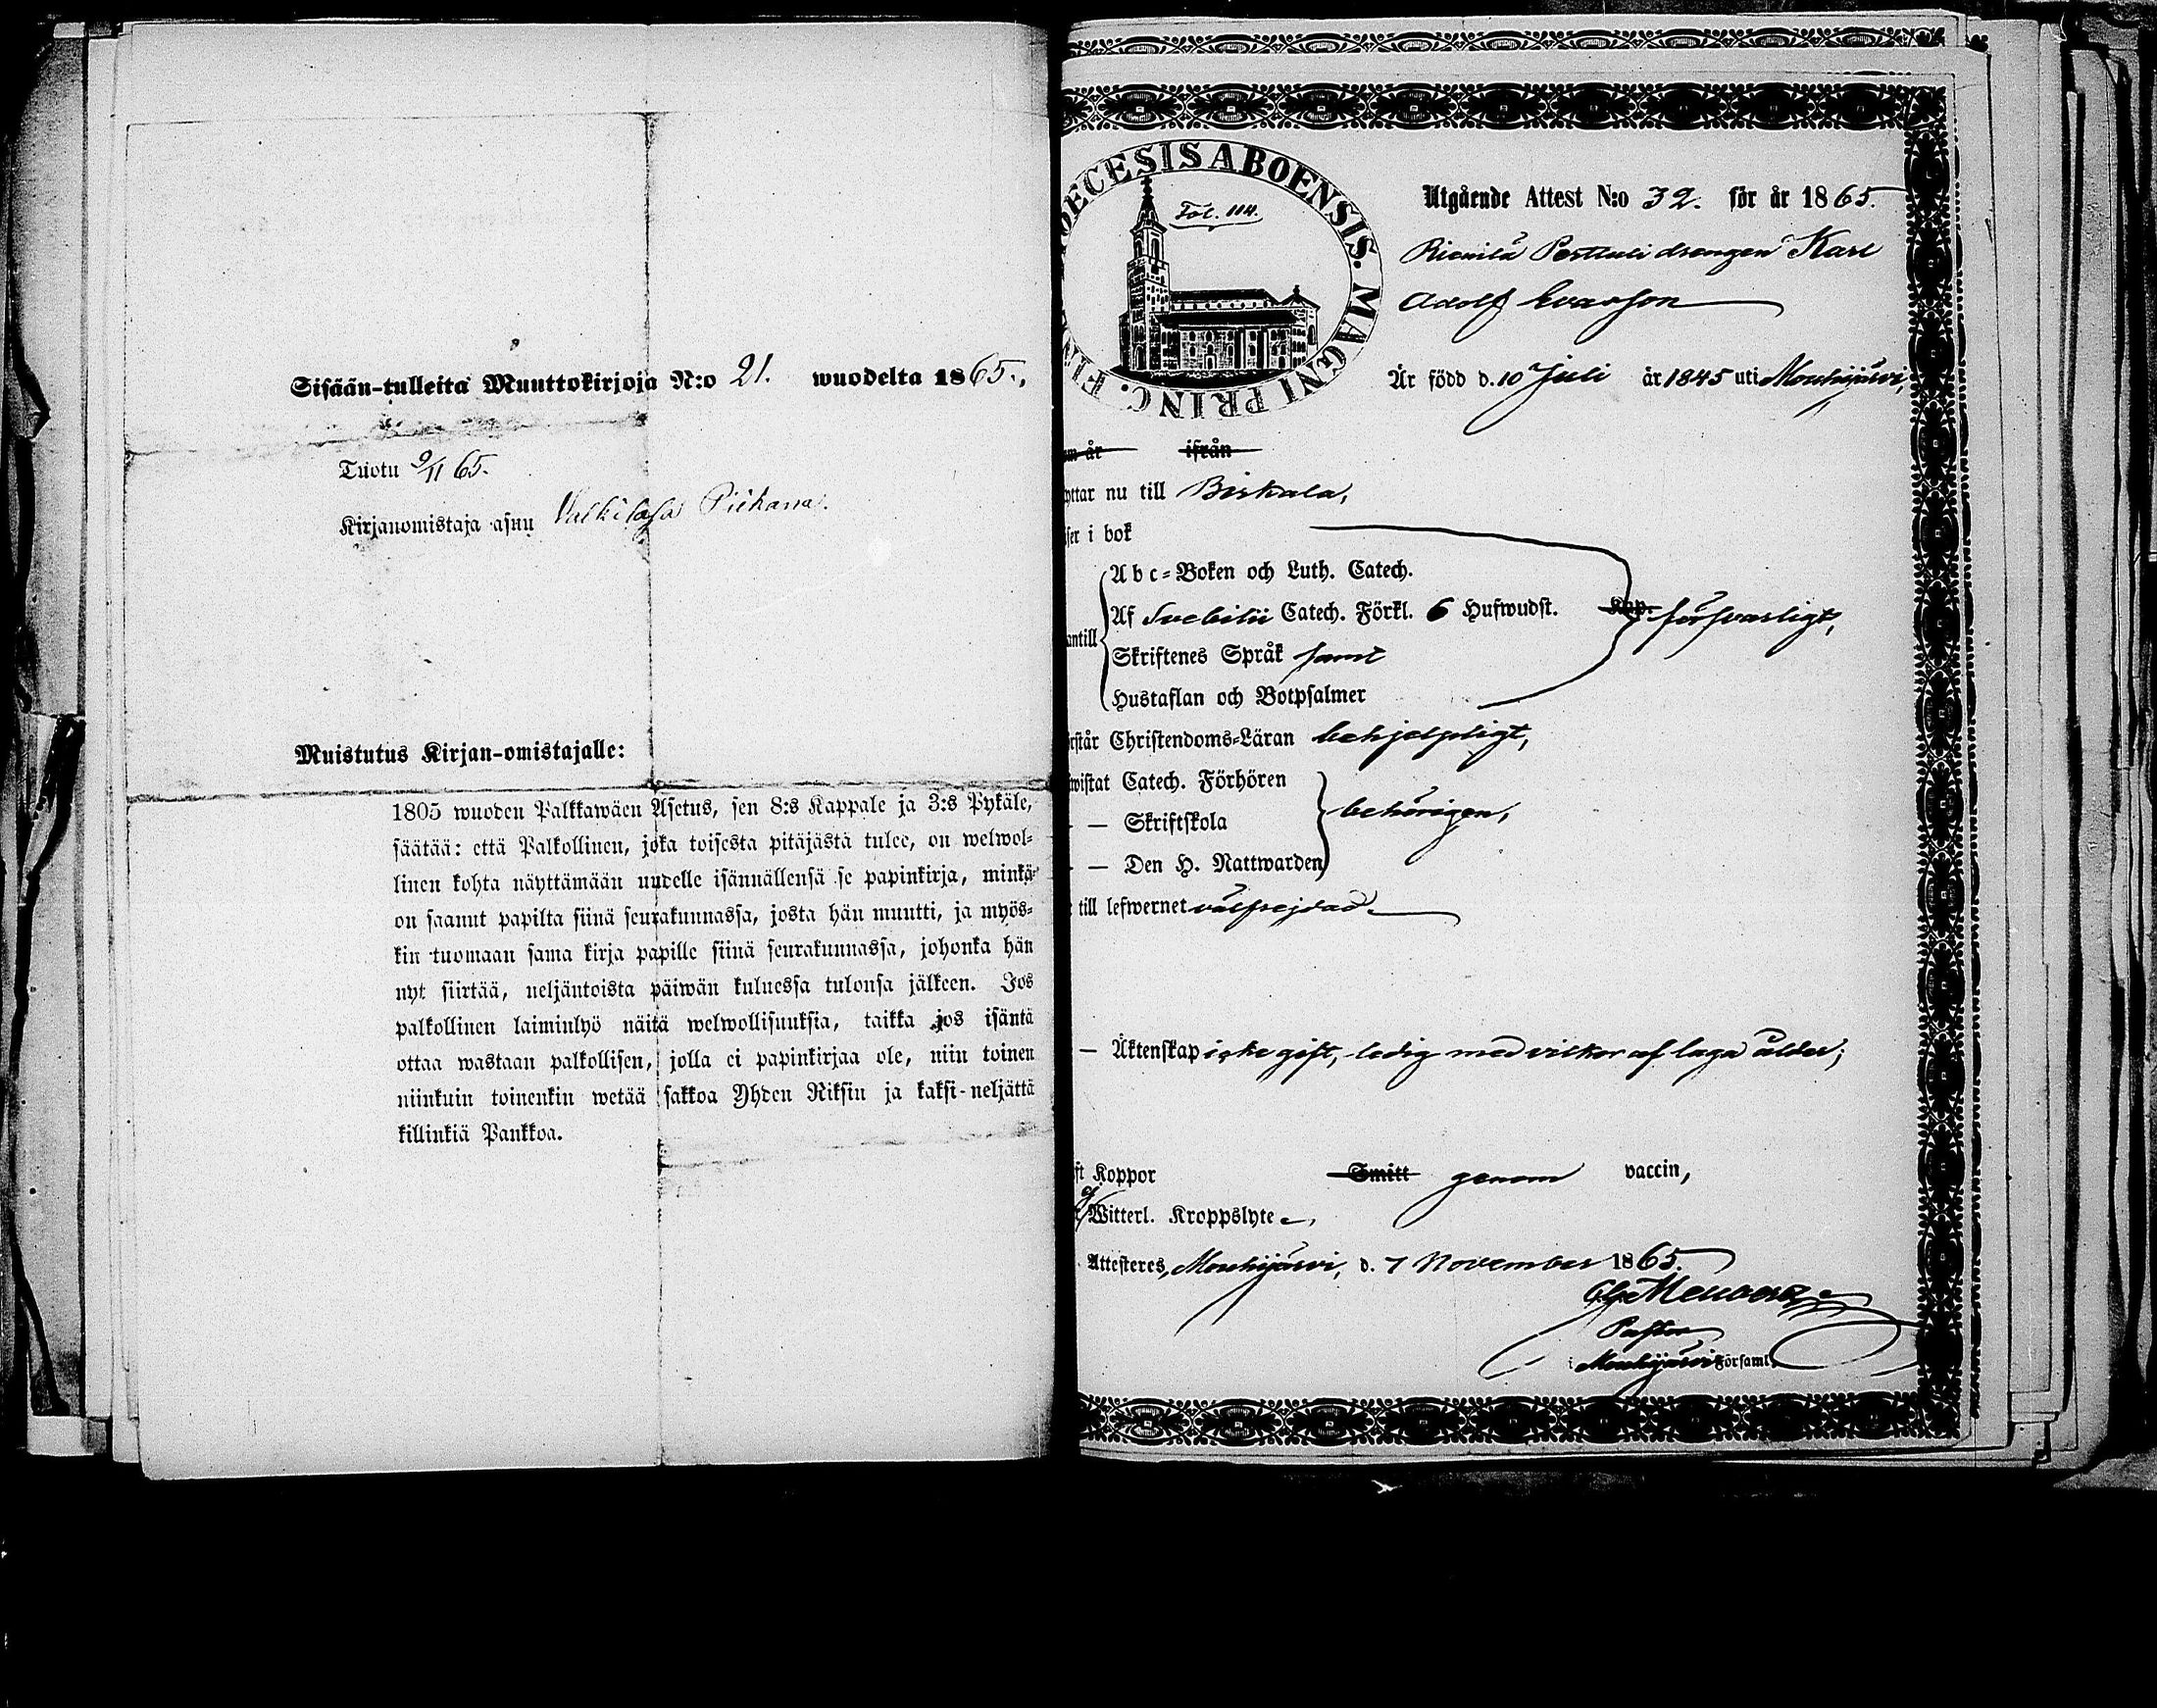 Sisään-tulleita Muuttokirjoja N:o 21. wuodelta 1865.,
Tuotu 9/11 65.
Kirjanomistaja asuu Valkilasa Piikana.
Muistutus Kirjan-omistajalle:
1805 wuoden Palkkawäen Asetus, sen 8:s Kappale ja 3:s Pykäle,
säätää: että Palkollinen, joka toisesta pitäjästä tulee, on welwol-
linen kohta näyttämään uudelle isännällensä se papinkirja, minkä-
on saanut papilta siinä seurakunnassa, josta hän muutti, ja myös-
kin tuomaan sama kirja papille siinä seurakunnassa, johonka hän
nyt siirtää, neljäntoista päiwän kuluessa tulonsa jälkeen. Jos
palkollinen laiminlyö näitä welwollisuuksia, taikka jos isäntä
ottaa wastaan palkollisen, jolla ei papinkirjaa ole, niin toinen
niinkuin toinenkin wetää sakkoa Yhden Riksin ja kaksi-neljättä
killinkiä Pankkoa.
ECESIS ABOENSIS. MAGNI PRINC. FI
Fol. 114.
Utgående Attest N:o 32. för år 1865.
Perttuli drengen Karl
Adolf Evasson
Är född d. 10 Juli år 1845 uti Mouhijärvi,
m år ifrån
yttar nu till Birkala,
ser i bok
Abc-Boken och Luth. Catech.
antill
Af Svebilii Catech. Förkl. 6 Hufwudst. Kap. försvarligt,
Skriftenes Språk samt
Hustaflan och Botpsalmer
rstår Christendoms-Läran behjelpligt,
wistat Catech. Förhören
— Skriftskola behörigen,
— Den H. Nattwarden
till lefwernet välfrejdad
— Äktenskap icke gift, ledig med vilkor af laga ålder;
ft Koppor Smitt genom vaccin,
Witterl. Kroppslyte
Attesteres, Mouhijärvi, d. 7 November 1865.
Pastor
i Mouhijärvi Församl.